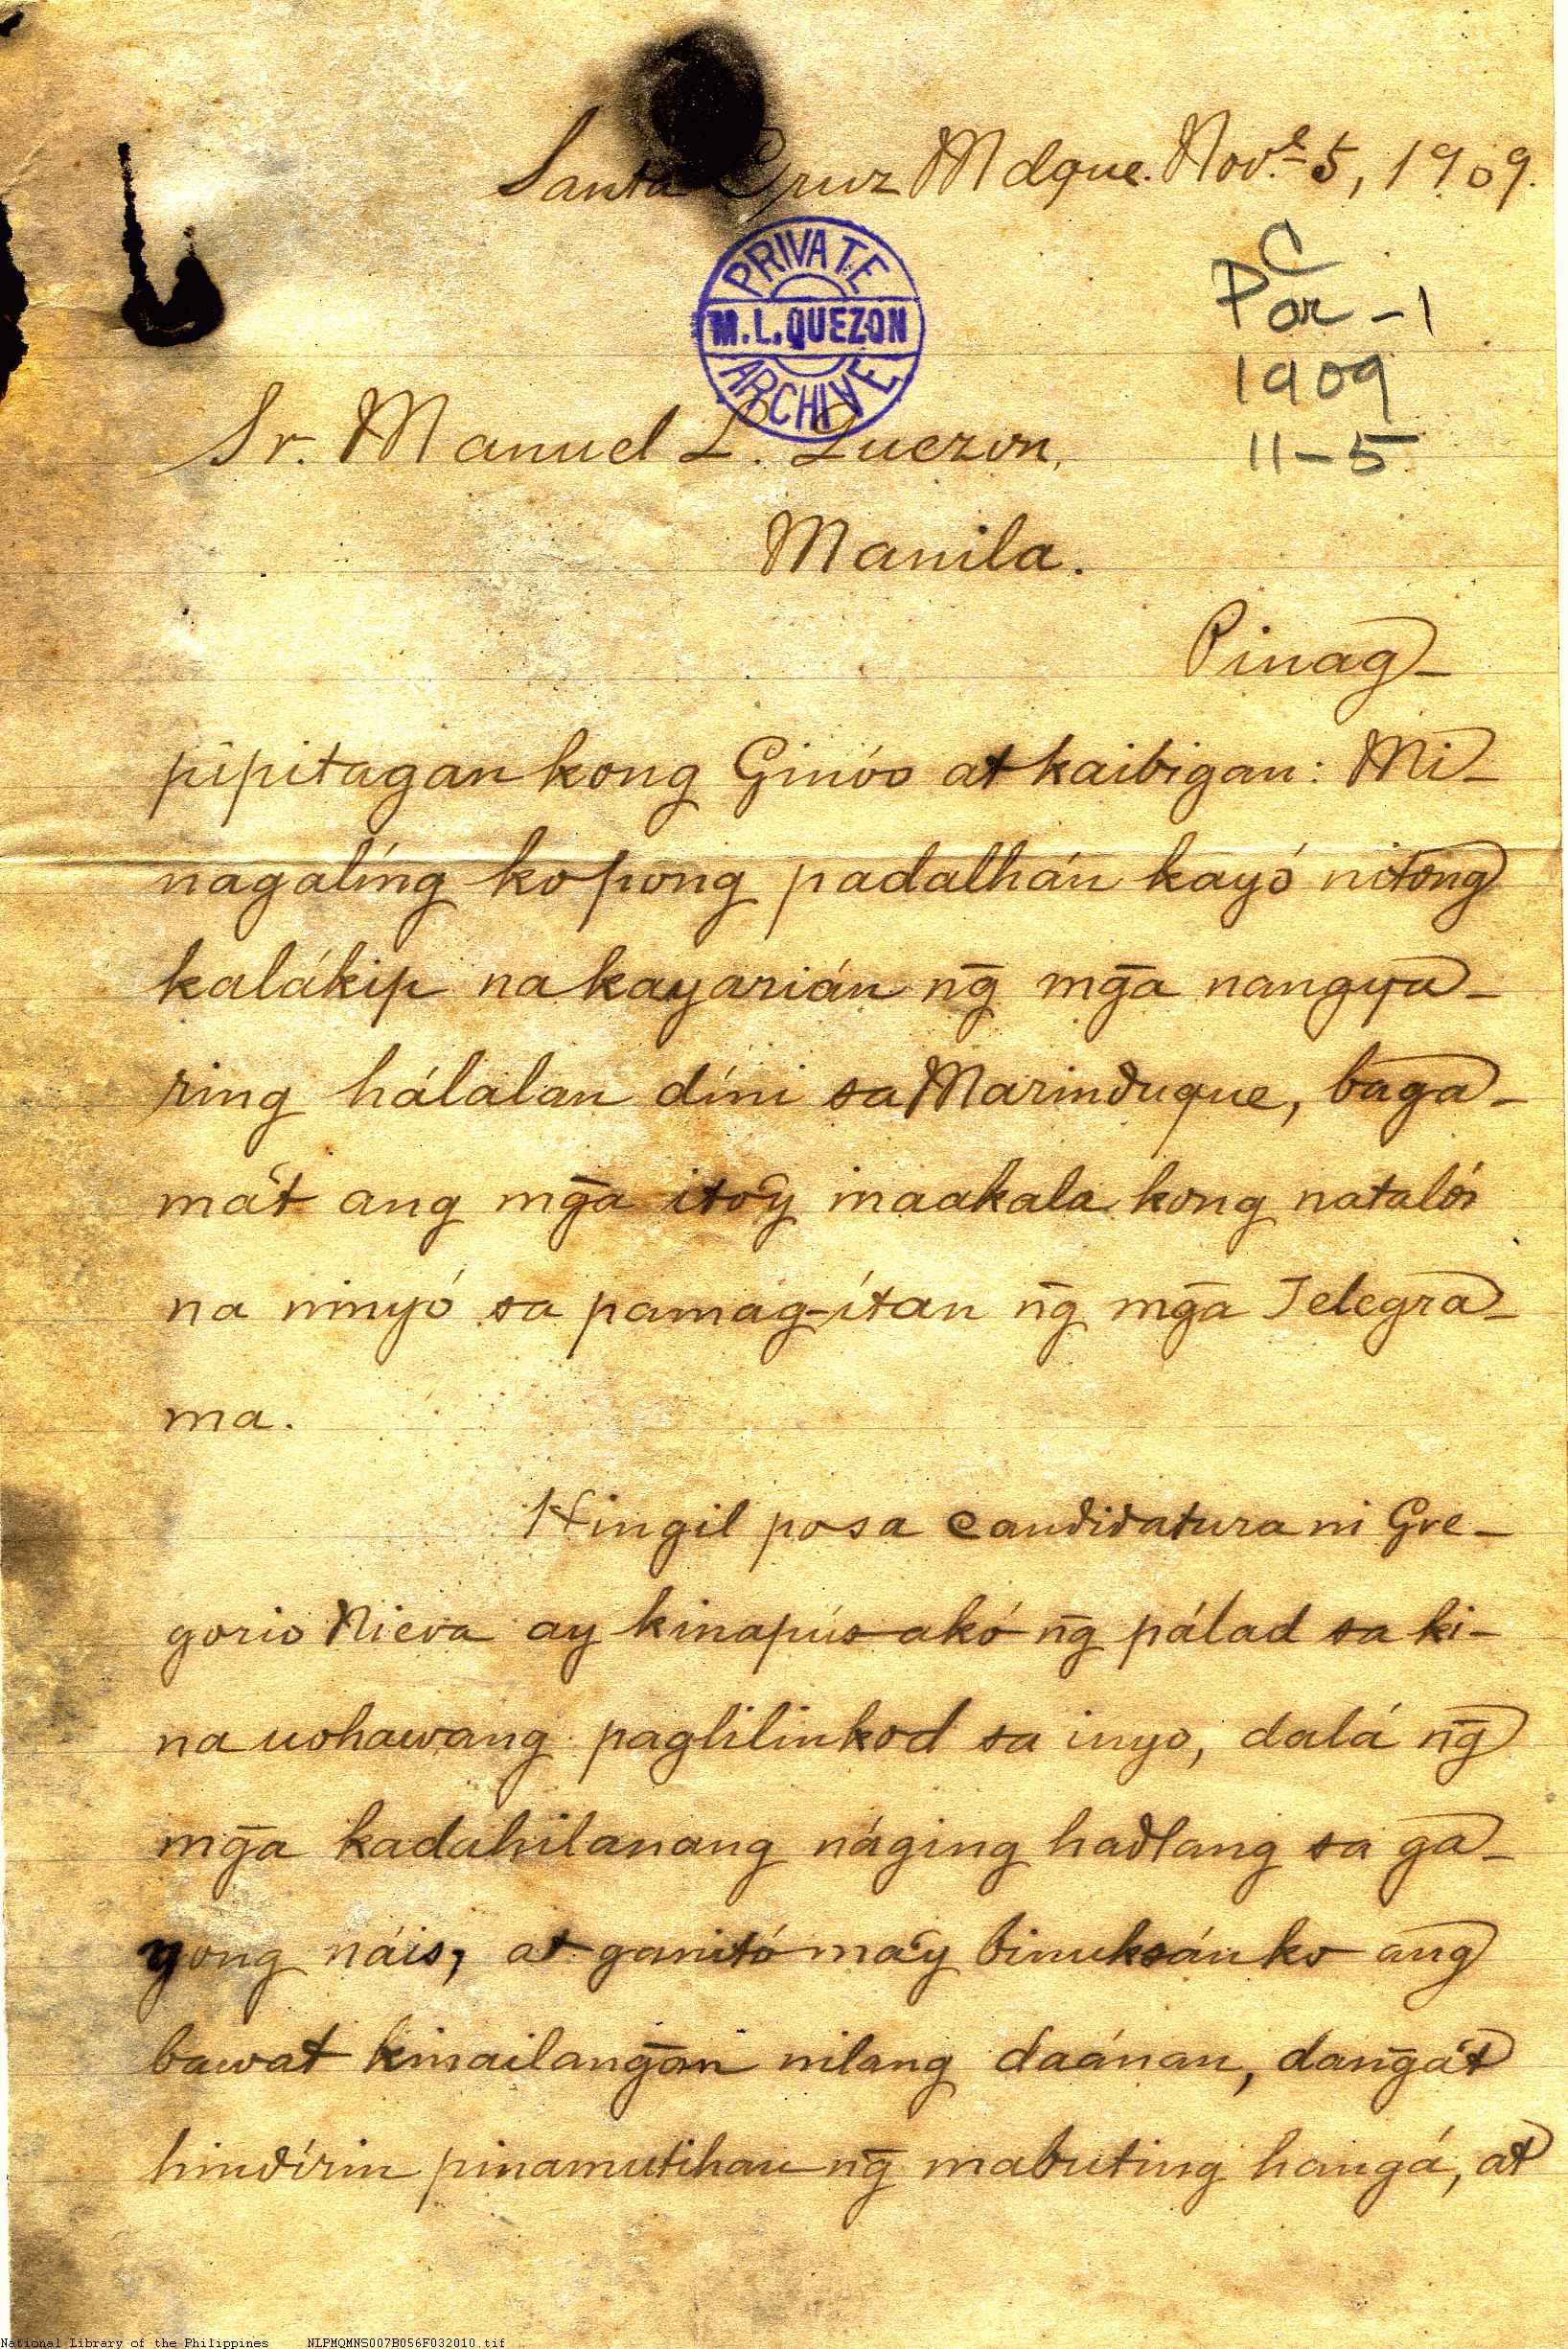 Santa Cruz Mdque. Nov.e 5, 1909.
PRIVATE
M.L.QUEZON
ARCHIVE
C
Par-1
1909
11-5
Sr. Manuel L. Quezon,
Manila.
Pinag-
pipitagan kong Ginóo at kaibigan: Mi-
nagalíng ko pong padalhán kayó nitong
kalákip na kayarián n̄g mg̃a nangya-
ring hálalan díni sa Marinduque, baga-
ma't ang mg̃a ito'y inaakala kong natalós
na ninyó sa pamag-ítan n̄g mg̃a Telegra-
ma.
Hingil po sa candidatura ni Gre-
gorio Nieva ay kinapús akó n̄g pálad sa ki-
na uohawang paglilinkod sa inyo, dalá n̄g
mg̃a kadahilanang náging hadlang sa ga-
yong náis, at ganitó ma'y binuksán ko ang
bawat kinailang̃an nilang daánan, dang̃a't
hindírin pinamutihan n̄g mabuting hangá, at
National Library of the Philippines NLPMQMNS007B056F032010.tif